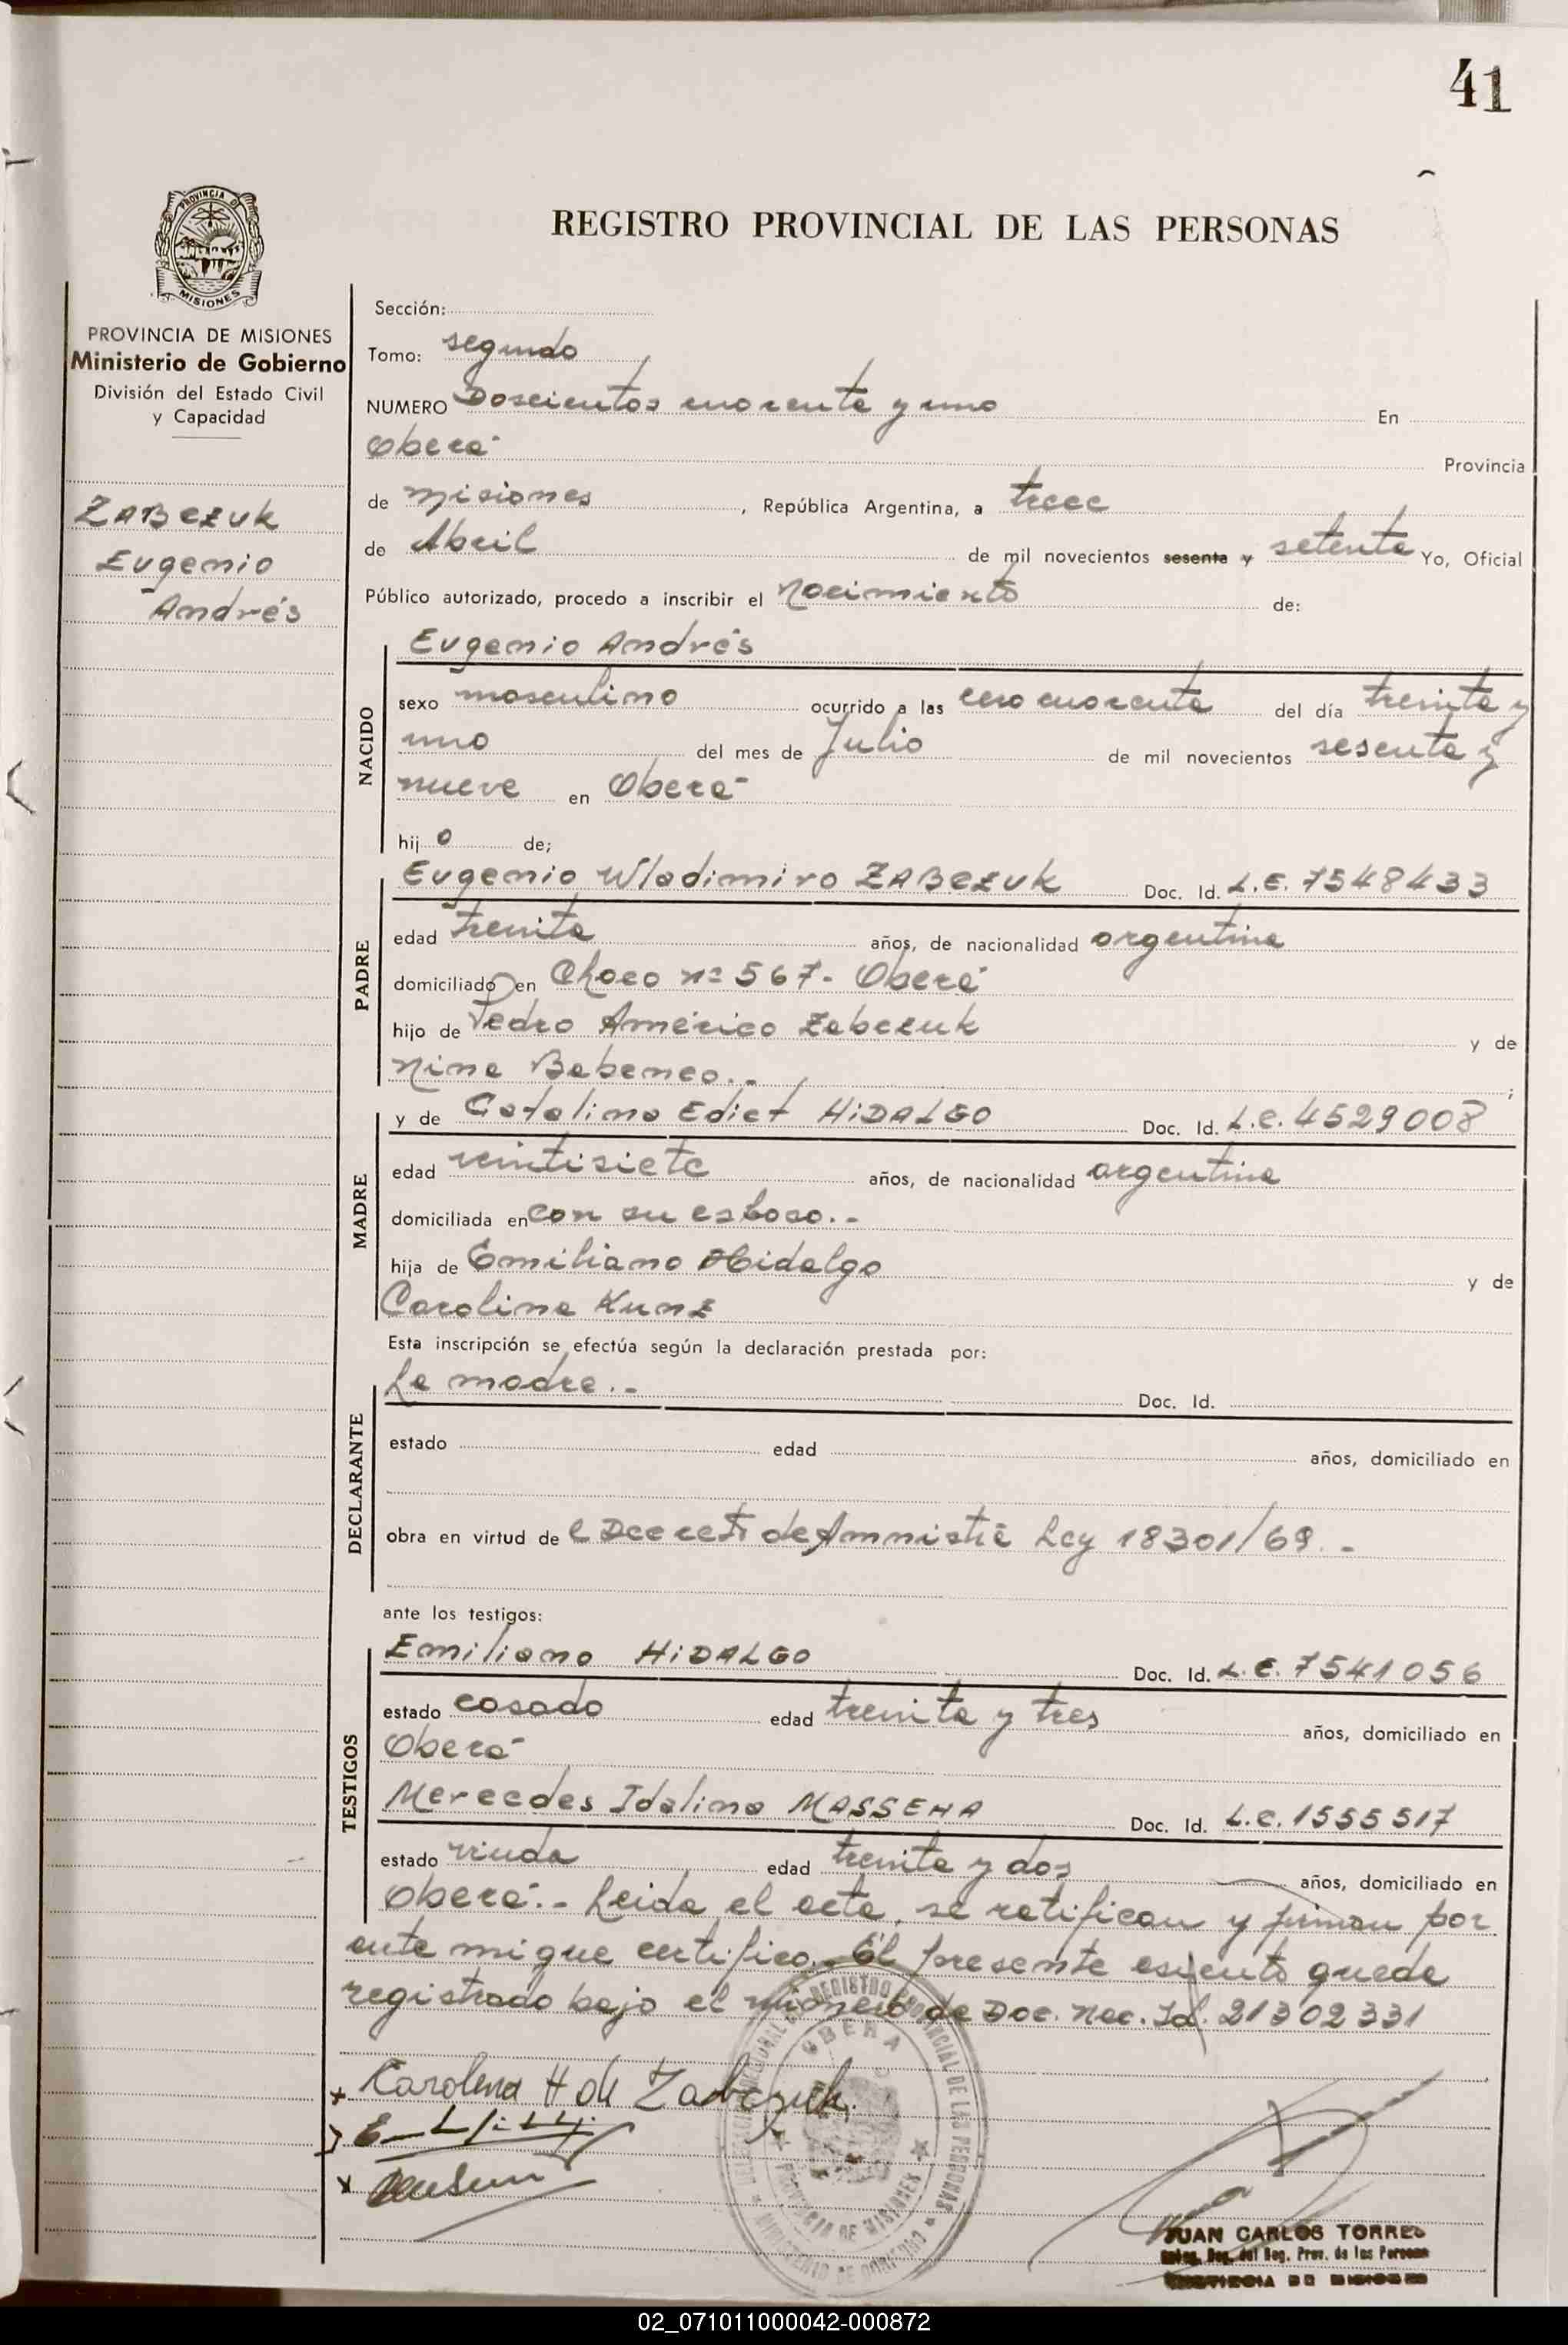 41
PROVINCIA DE
MISIONES
REGISTRO PROVINCIAL DE LAS PERSONAS
PROVINCIA DE MISIONES
Ministerio de Gobierno
División del Estado Civil
y Capacidad
ZABCZUK
Eugenio
Andrés
Sección:
Tomo: segundo
NUMERO Doscientos cuarenta y uno En
Oberá Provincia
de Misiones, República Argentina, a trece
de Abril de mil novecientos sesenta y setenta Yo, Oficial
Público autorizado, procedo a inscribir el Nacimiento de:
NACIDO
Eugenio Andrés
sexo masculino ocurrido a las cero cuarenta del día treinta y
uno del mes de Julio de mil novecientos sesenta y
nueve en Oberá
hijo de;
PADRE
Eugenio Wladimiro ZABCZUK Doc. Id. L.E. 7548433
edad treinta años, de nacionalidad argentina
domiciliado en Chaco nº 567. Oberá
hijo de Pedro Américo Zabczuk y de
Nina Babenco.- ;
MADRE
y de Catalina Edict HiDALGO Doc. Id. L.C. 4529008
edad veintisiete años, de nacionalidad argentina
domiciliada en con su esposo.-
hija de Emiliano Hidalgo y de
Carolina Kunz
Esta inscripción se efectúa según la declaración prestada por:
DECLARANTE
La madre.- Doc. Id.
estado edad años, domiciliado en
obra en virtud de l Decreto de Amnistía Ley 18301/69.-
ante los testigos:
TESTIGOS
Emiliano HiDALGO Doc. Id. L.E. 7541056
estado casado edad treinta y tres años, domiciliado en
Oberá
Mercedes Idalina MASSEHA Doc. Id. L.C. 1555517
estado viuda edad treinta y dos años, domiciliado en
Oberá.- Leida el acta, se ratifican y firman por
ante mi que certifico.- El presente asiento queda
registrado bajo el número de Doc. Nac. Id. 21302331
Carolina H de Zabczuk.
REGISTRO PROVINCIAL DE LAS PERSONAS
OBERA
PROVINCIA DE MISIONES
MINISTERIO DE GOBIERNO
JUAN CARLOS TORRES
del Reg. Prov. de las Personas
PROVINCIA DE MISIONES
02_071011000042-000872